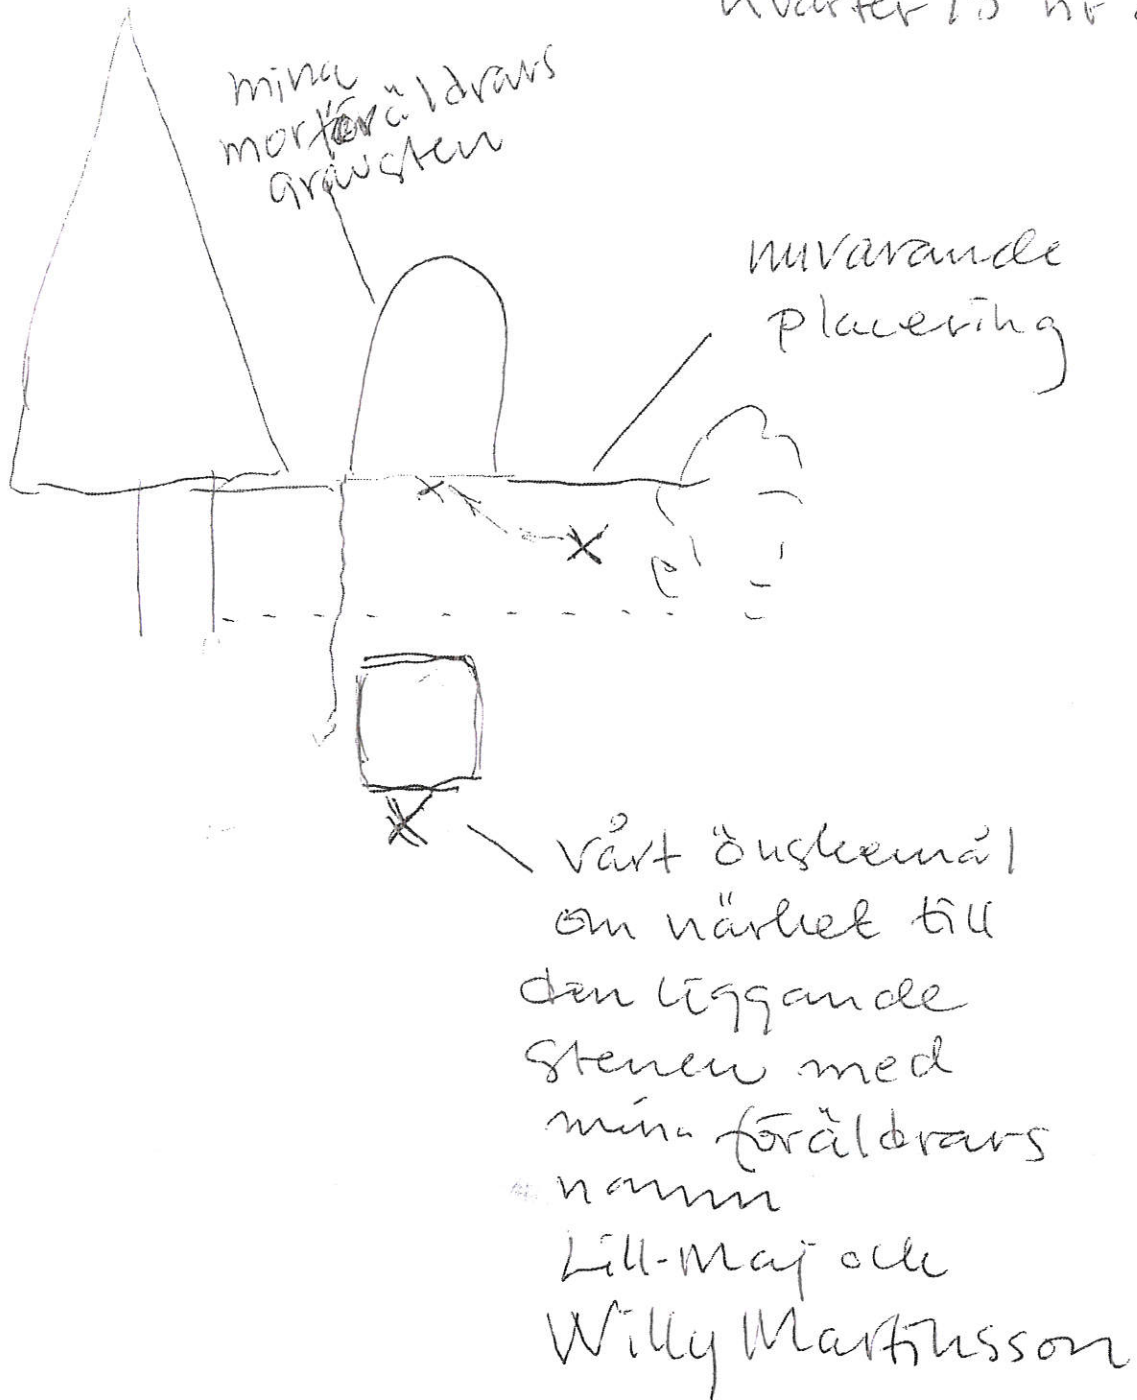 kvarter 15 nr
mina
morföräldrars
gravsten
nuvarande
placering
vårt önskemål
om närhet till
den liggande
stenen med
mina föräldrars
namn
Lill-Maj och
Willy Martinsson